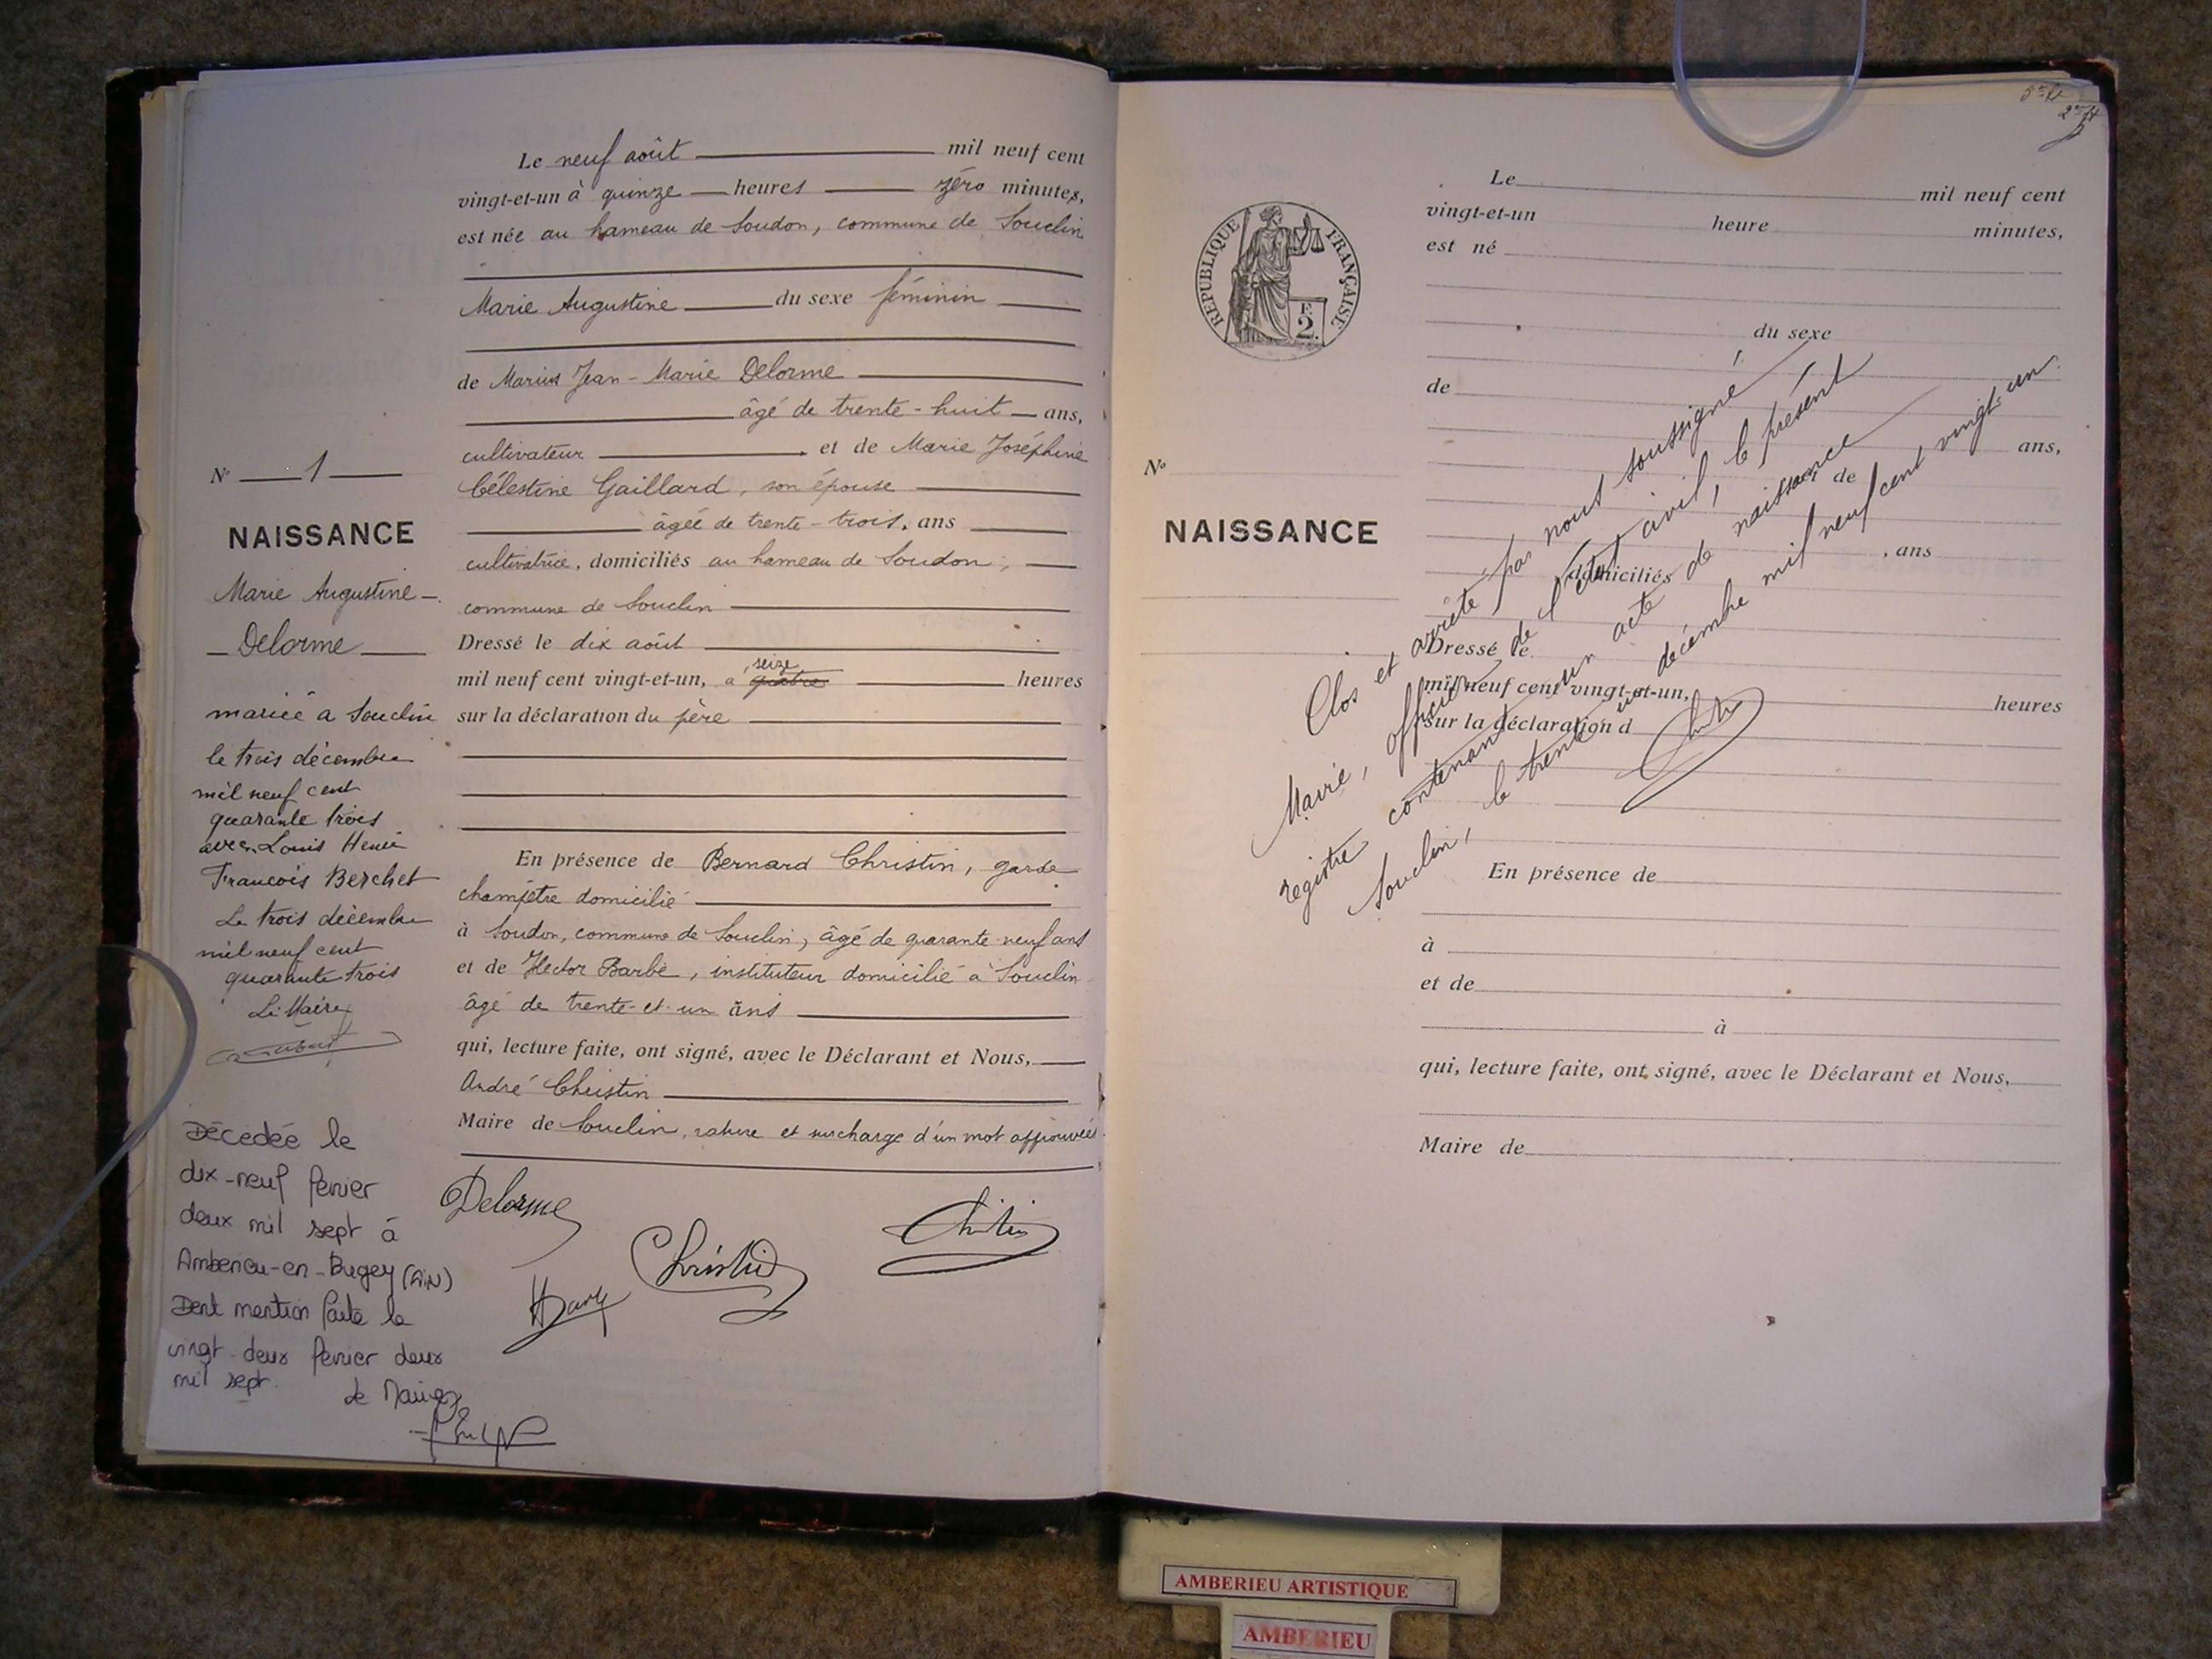 Le neuf août mil neuf cent
vingt-et-un à quinze heures zéro minutes,
est née au hameau de Soudon, commune de Souclin
Marie Augustine du sexe féminin
de Marius Jean-Marie Delorme
âgé de trente-huit ans,
cultivateur et de Marie Joséphine
Célestine Gaillard, son épouse
âgée de trente-trois, ans
cultivatrice, domiciliés au hameau de Soudon,
commune de Souclin
Dressé le dix août
seize
mil neuf cent vingt-et-un, à quatre heures
sur la déclaration du père
En présence de Bernard Christin, garde
champêtre domicilié
à Soudon, commune de Souclin, âgé de quarante-neuf ans
et de Hector Barbe, instituteur domicilié à Souclin
âgé de trente-et-un ans
qui, lecture faite, ont signé, avec le Déclarant et Nous,
André Christin
Maire de Souclin, rature et surcharge d'un mot approuvées.
Delorme
Christin
Christin
N° 1
NAISSANCE
Marie Augustine
Delorme
mariée à Souclin
le trois décembre
mil neuf cent
quarante trois
avec Louis Henri
François Berchet
Le trois décembre
mil neuf cent
quarante trois
Le Maire
Décédée le
dix-neuf février
deux mil sept à
Ambérieu-en-Bugey (AIN)
Dont mention faite le
vingt-deux février deux
mil sept.
Le Maire
REPUBLIQUE FRANÇAISE
F.
2.
N°
NAISSANCE
Le mil neuf cent
vingt-et-un heure minutes,
est né
du sexe
de
ans,
et de
, ans
domiciliés
Dressé le
mil neuf cent vingt-et-un, heures
sur la déclaration d
En présence de
à
et de
à
qui, lecture faite, ont signé, avec le Déclarant et Nous,
Maire de
Clos et arrêté par nous soussigné
Maire, officier de l'état civil, le présent
registre contenant un acte de naissance
Souclin, le trente un décembre mil neuf cent vingt-un.
Christin
AMBERIEU ARTISTIQUE
AMBERIEU